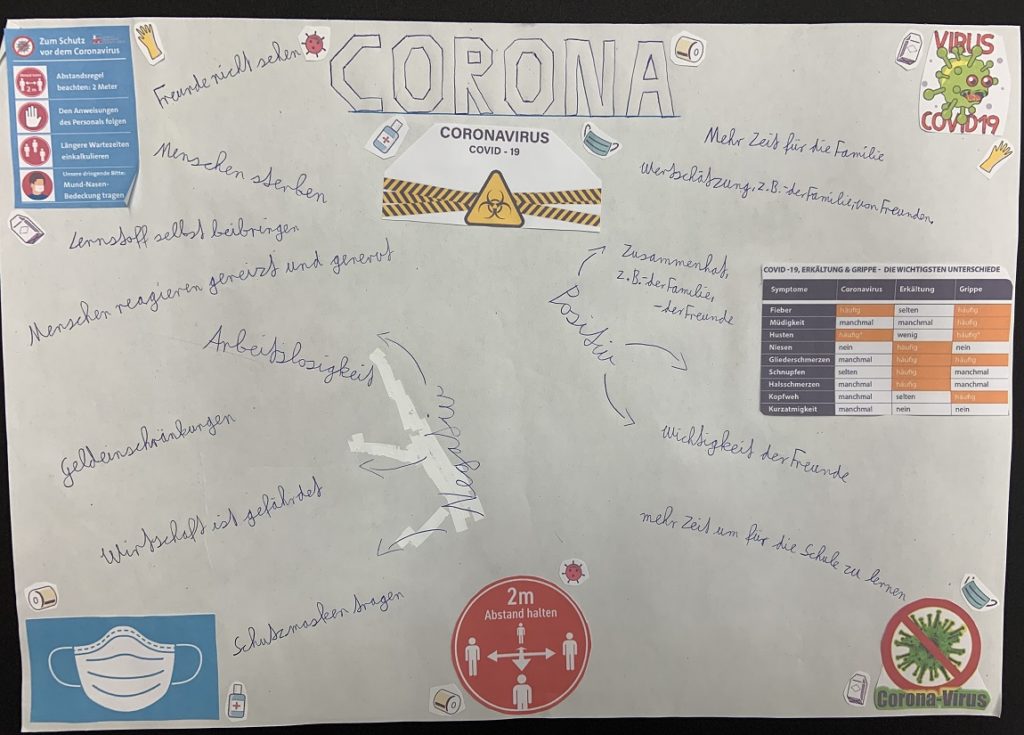 CORONA
Zum Schutz
vor dem Coronavirus
Abstandsregel
beachten: 2 Meter
Den Anweisungen
des Personals folgen
Längere Wartezeiten
einkalkulieren
Unsere dringende Bitte:
Mund-Nasen-
Bedeckung tragen
Freunde nicht sehen
Menschen sterben
Lernstoff selbst beibringen
Menschen reagieren gereizt und genervt
Arbeitslosigkeit
Geldeinschränkungen
Wirtschaft ist gefährdet
Schutzmasken tragen
Negativ
CORONAVIRUS
COVID - 19
Positiv
VIRUS
COVID19
Mehr Zeit für die Familie
Wertschätzung, z.B. - der Familie, von Freunden,
Zusammenhat,
z.B. - der Familie,
- der Freunde
COVID -19, ERKÄLTUNG & GRIPPE - DIE WICHTIGSTEN UNTERSCHIEDE
Symptome Coronavirus Erkältung Grippe
Fieber häufig selten häufig
Müdigkeit manchmal manchmal häufig
Husten häufig* wenig häufig*
Niesen nein häufig nein
Gliederschmerzen manchmal häufig häufig
Schnupfen selten häufig manchmal
Halsschmerzen manchmal häufig manchmal
Kopfweh manchmal selten häufig
Kurzatmigkeit manchmal nein nein
Wichtigkeit der Freunde
mehr Zeit um für die Schule zu lernen
2m
Abstand halten
Corona-Virus